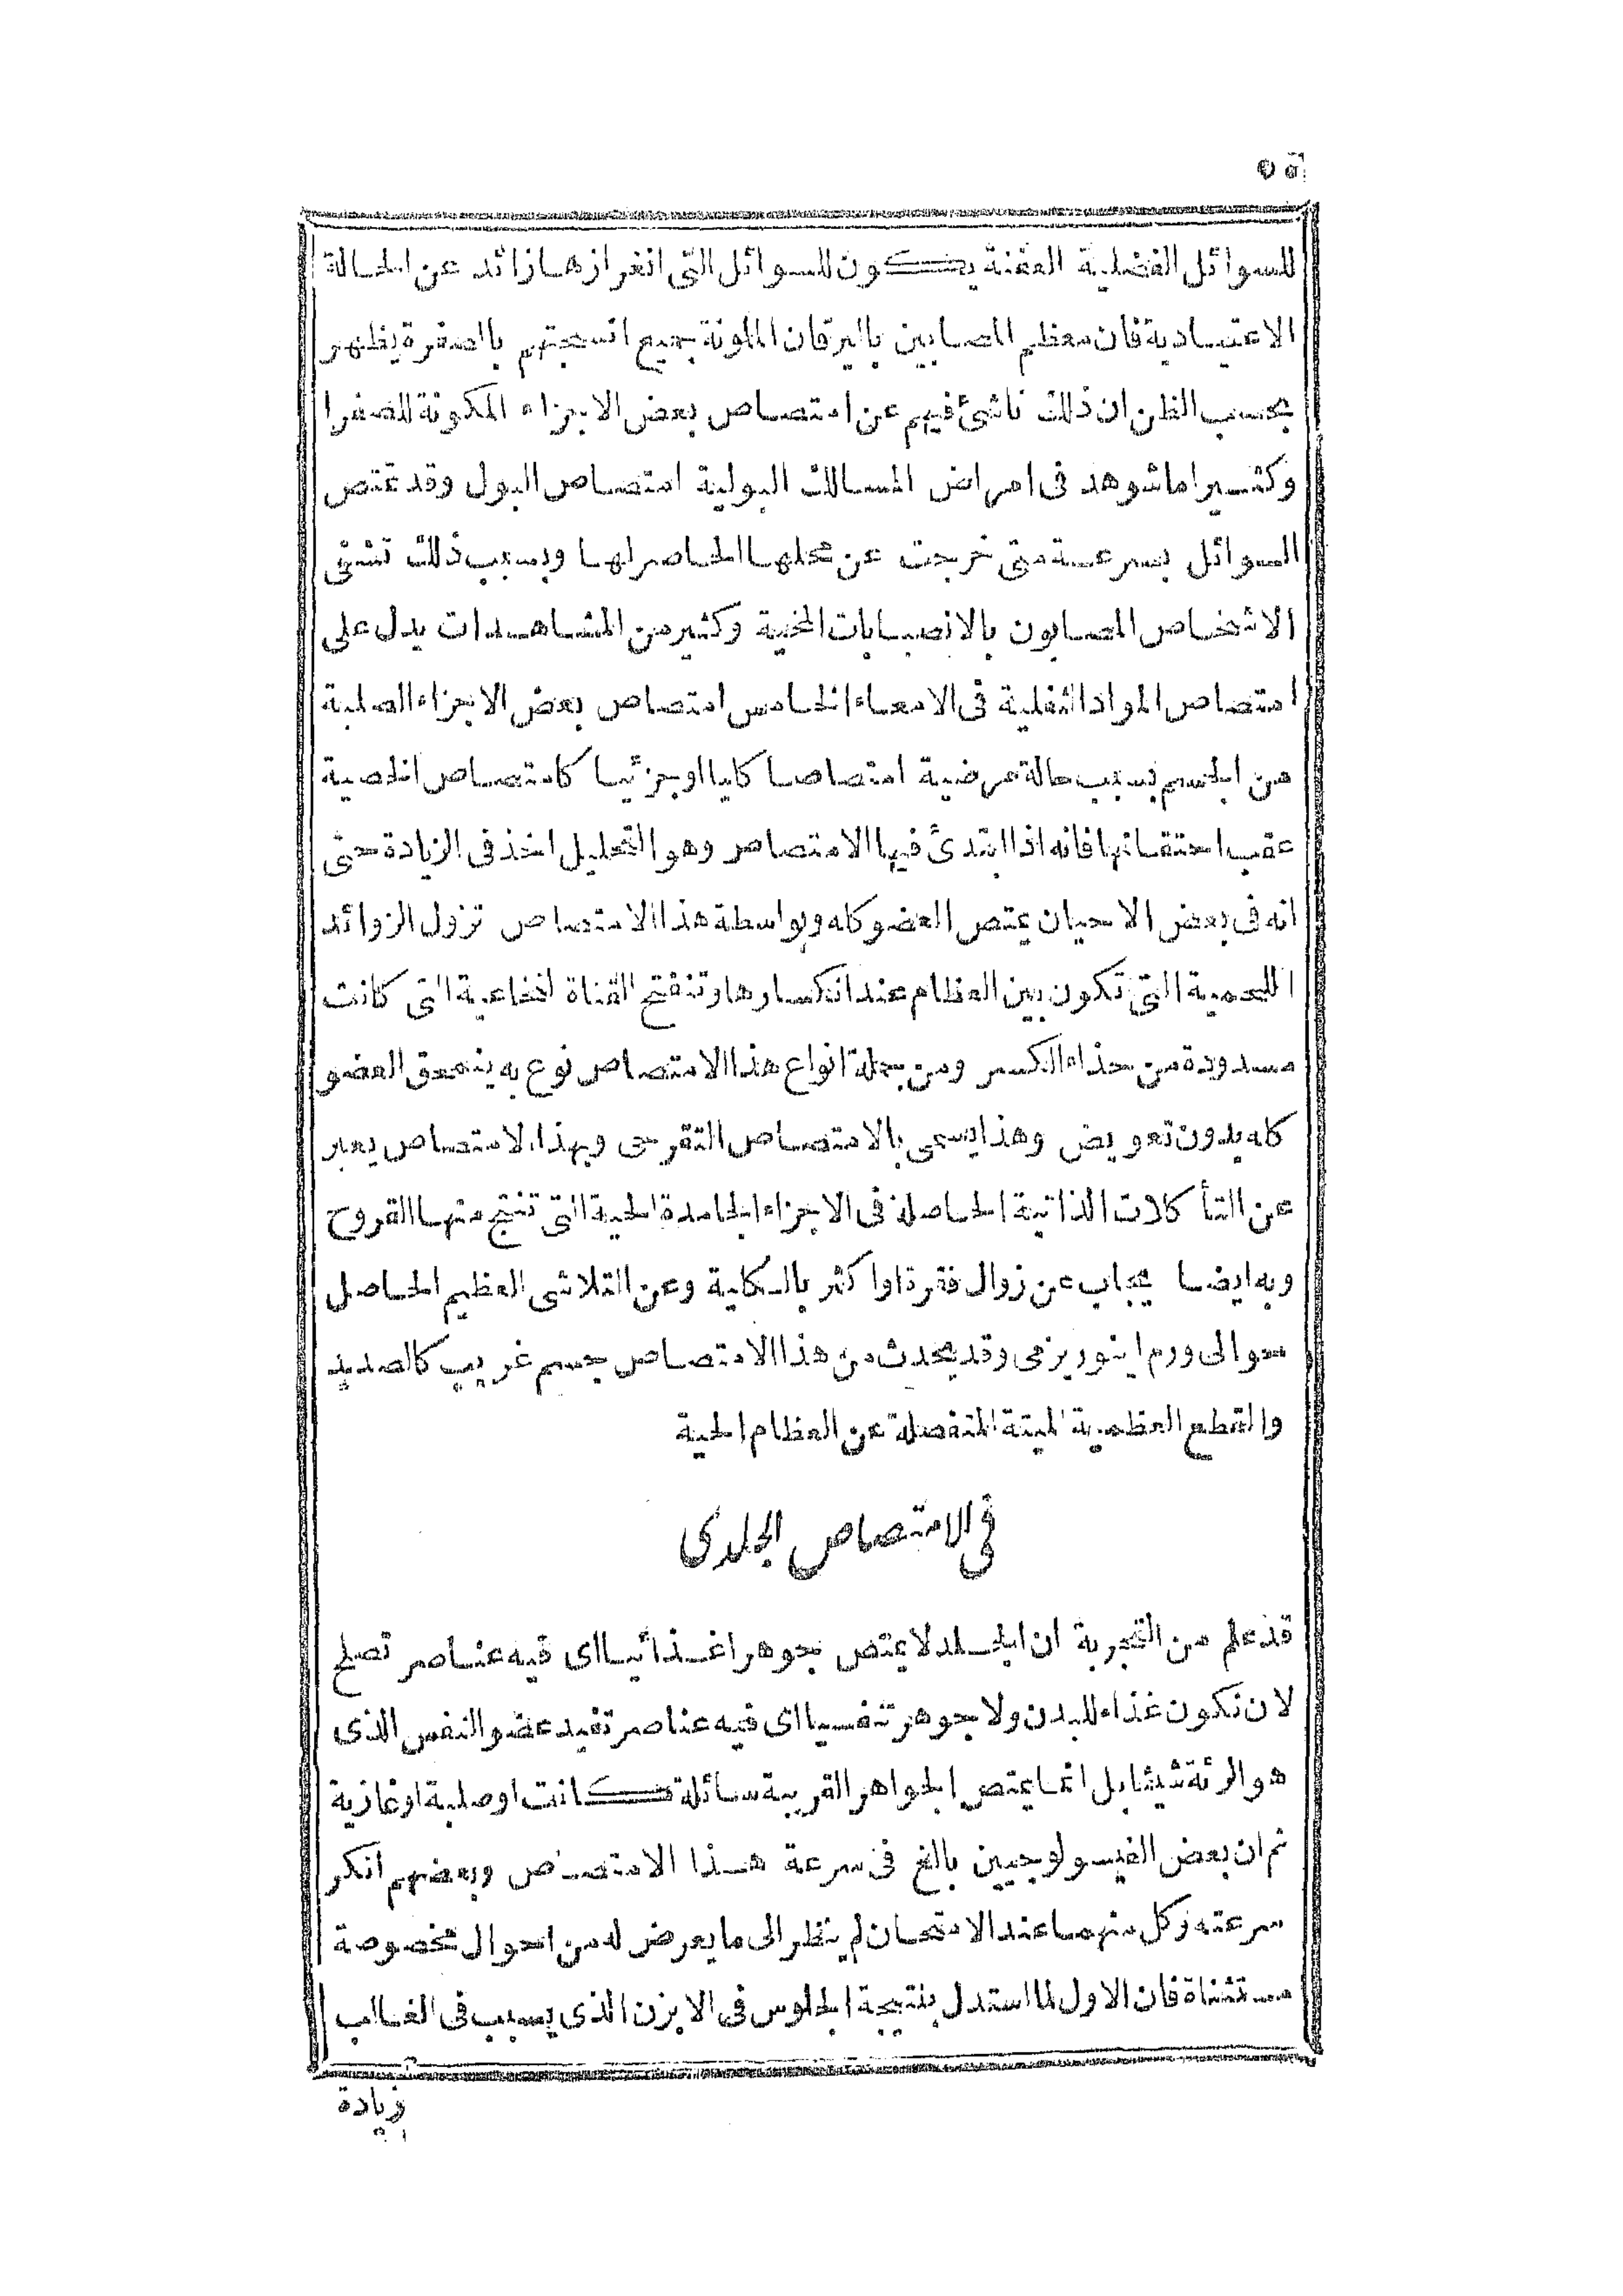 للسوائل الفضلية العفنة يكون للسوائل التى انغرازها زائد عن الحالة
الاعتيادية فان معظم المصابين باليرقان الملونة جميع انسجتهم بالصفرة يظهر
بحسب الظن ان ذلك ناشئ فيهم عن امتصاص بعض الاجزاء المكونة للصفرا
وكثيرا ما شوهد فى امراض المسالك البولية امتصاص البول وقد تمتص
السوائل بسرعة متى خرجت عن محلها الحاصر لها وبسبب ذلك تشفى
الاشخاص المصابون بالانصبابات المخية وكثير من المشاهدات يدل على
امتصاص المواد الثفلية فى الامعاء الخامس امتصاص بعض الاجزاء الصلبة
من الجسم بسبب حالة مرضية امتصاصا كليا او جزئيا كامتصاص الخصية
عقب احتقانها فانه اذا ابتدئ فيها الامتصاص وهو التحليل اخذ فى الزيادة حتى
انه فى بعض الاحيان يمتص العضو كله وبواسطة هذا الامتصاص تزول الزوائد
اللحمية التى تكون بين العظام عند انكسارها وتنفتح القناة النخاعية التى كانت
مسدودة من حذاء الكسر ومن جملة انواع هذا الامتصاص نوع به ينمحق العضو
كله بدون تعويض وهذا يسمى بالامتصاص التقرحى وبهذا الامتصاص يعبر
عن التأكلات الذاتية الحاصلة فى الاجزاء الجامدة الحية التى تنتج منها القروح
وبه ايضا يجاب عن زوال فقرة او اكثر بالكلية وعن التلاشى العظيم الحاصل
حوالى ورم اينوريزمى وقد يحدث من هذا الامتصاص جسم غريب كالصديد
والقطع العظمية الميتة المنفصلة عن العظام الحية
فى الامتصاص الجلدى
قد علم من التجربة ان الجلد لا يمتص جوهرا غذائيا اى فيه عناصر تصلح
لان تكون غذاء للبدن ولا جوهر تنفسيا اى فيه عناصر تفيد عضو النفس الذى
هو الرئة شيئا بل انما يمتص الجواهر القريبة سائلة كانت او صلبة او غازية
ثم ان بعض الفيسولوجيين بالغ فى سرعة هذا الامتصاص وبعضهم انكر
سرعته وكل منهما عند الامتحان لم ينظر الى ما يعرض له من احوال مخصوصة
مستثناة فان الاول لما استدل بنتيجة الجلوس فى الابزن الذى يسبب فى الغالب
زيادة